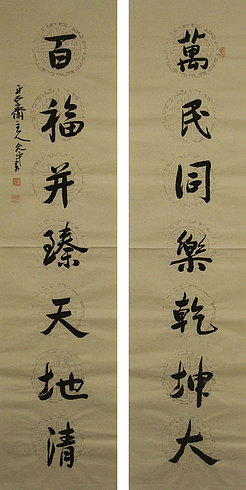 萬民同樂乾坤大
百福并臻天地清